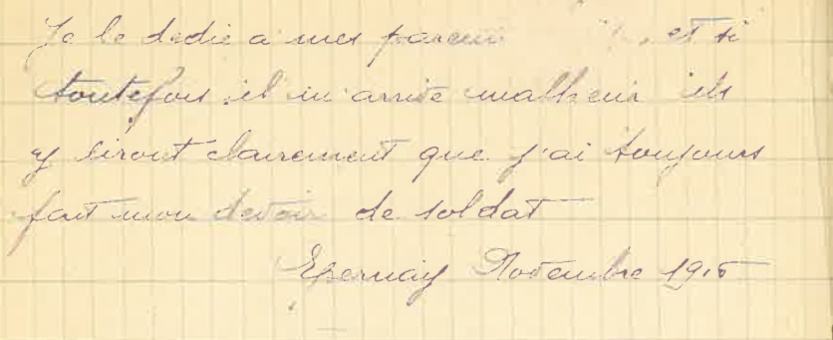 Je le dedie a mes parents, et si
toutefois il m'arrive malheur ils
y liront clairement que j'ai toujours
fait mon devoir de soldat
Epernay Novembre 1915